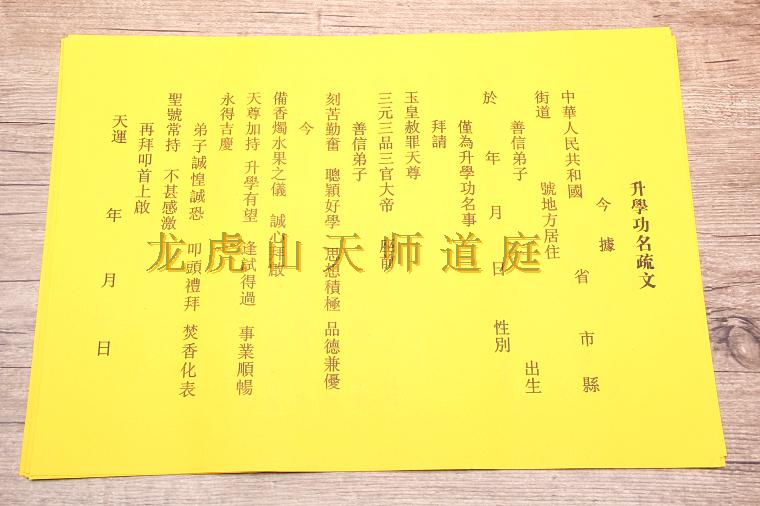 升學功名疏文
今據
中華人民共和國 省 市 縣
街道 號地方居住
善信弟子 出生
於 年 月 日 性別
僅為升學功名事
拜請
玉皇赦罪天尊
三元三品三官大帝 胎前
善信弟子
刻苦勤奮 聰穎好學 思想積極 品德兼優
今
備香燭水果之儀 誠心拜啟
天尊加持 升學有望 逢試得過 事業順暢
永得吉慶
弟子誠惶誠恐 叩頭禮拜 焚香化表
聖號常持 不甚感激
再拜叩首上啟
天運 年 月 日
龙虎山天师道庭